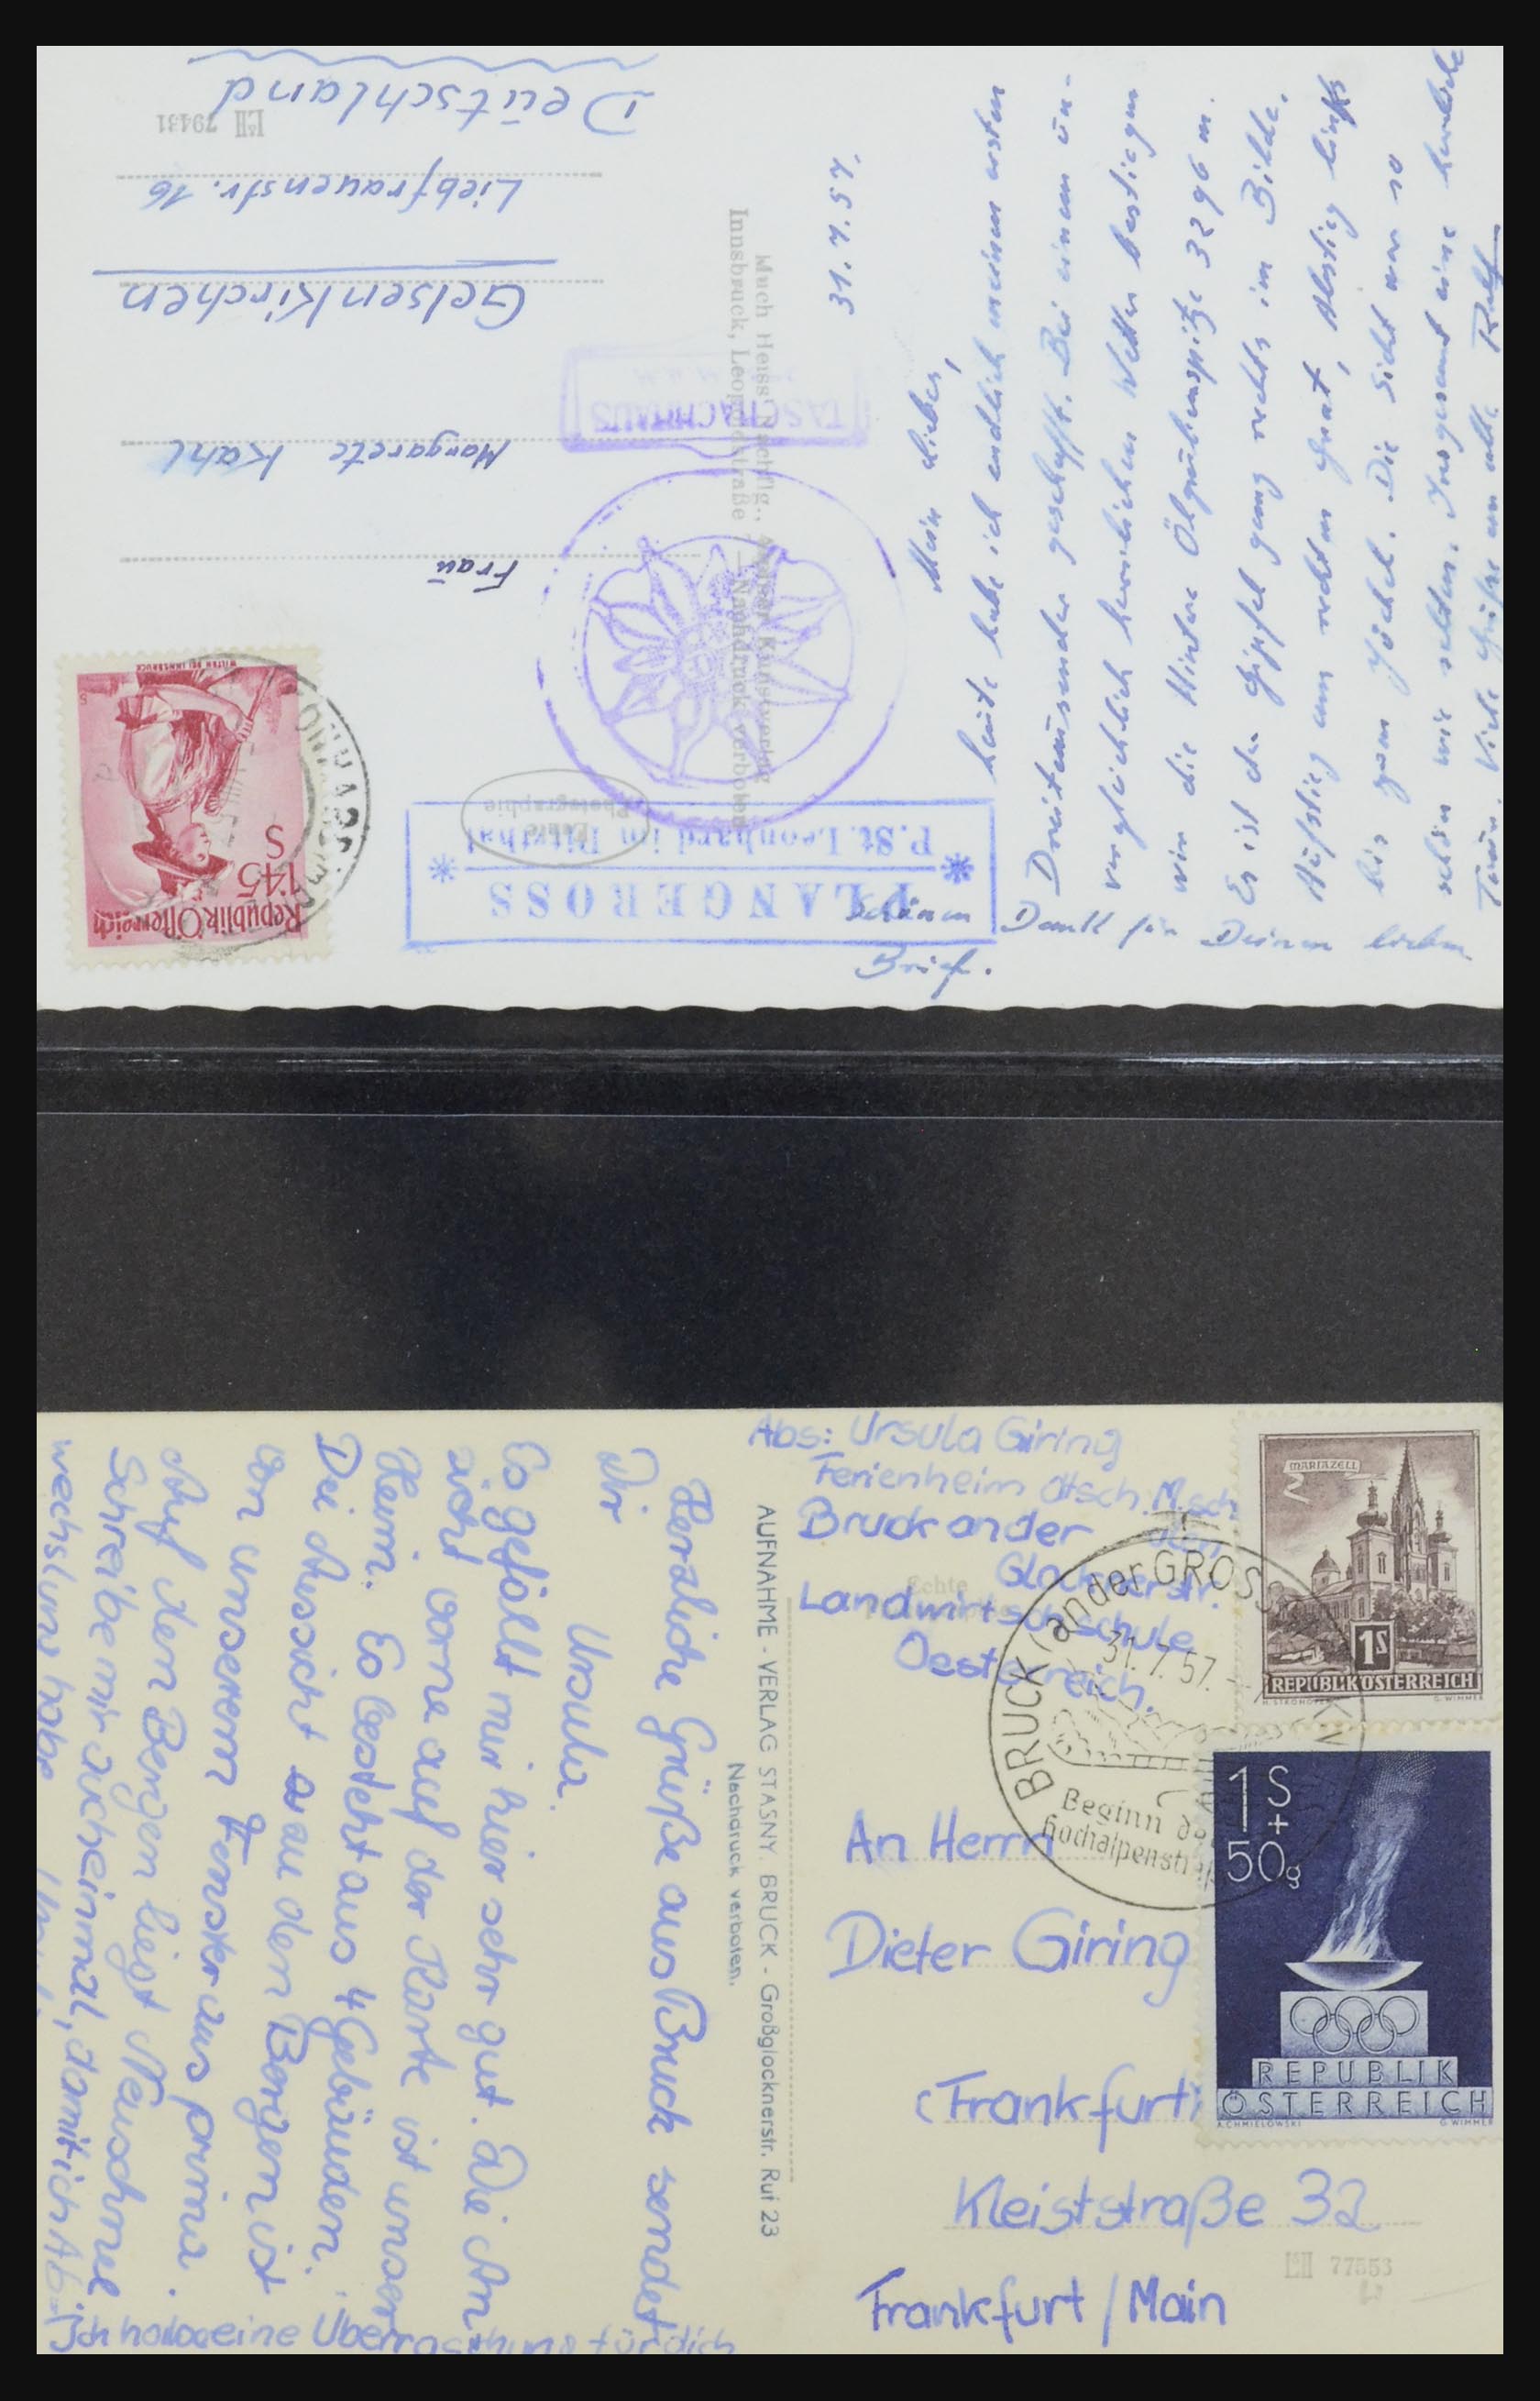 Deutschland
L&H 79431
Liebfrauenstr. 16
Gelsenkirchen
Margarete Kahl
Frau
Republik Österreich
1·45
S
WILTEN BEI INNSBRUCK
TASCHACHHAUS
Echte
Photographie
PLANGEROSS
P. St. Leonhard im Pitzthal
Much Heiss' Nachflg., Kunstverlag
Innsbruck, Leopoldstraße — Nachdruck verboten
31.7.57.
Mein Lieber,
heute habe ich endlich meinen ersten
Dreitausender geschafft. Bei einem un-
vergleichlich herrlichen Wetter bestiegen
wir die Hintere Ölgrubenspitze 3296 m.
Es ist der Gipfel ganz rechts im Bilde.
Aufstieg am rechten Grat, Abstieg links
bis zum Jöchel. Die Sicht war so
schön wie selten. Insgesamt eine herrliche
Tour. Viele Grüße an alle Rolf
Schönen Dank für Deinen lieben
Brief.
Abs: Ursula Giring
Ferienheim dtsch.
Bruck an der
Glocknerstr.
Landwirtschschule
Oesterreich.
Echte
MARIAZELL
1S
REPUBLIK ÖSTERREICH
G. WIMMER
BRUCK an der GROSS
31.7.57.
Beginn der
Hochalpenstr
1S
+
50g
REPUBLIK
ÖSTERREICH
A. CHMIELOWSKI
G. WIMMER
An Herrn
Dieter Giring
(Frankfurt)
Kleiststraße 32
L&H 77553
Frankfurt / Main
AUFNAHME - VERLAG STASNY. BRUCK - Großglocknerstr. Ruf 23
Nachdruck verboten.
Herzliche Grüße aus Bruck sendet
Dir
Ursula.
Es gefällt mir hier sehr gut. Die An
sicht vorne auf der Karte ist unser
Heim. Es besteht aus 4 Gebäuden.
Die Aussicht zu den Bergen ist
von unserem Fenster aus prima.
Auf den Bergen liegt Neuschnee
Schreibe mir auch einmal, damit ich Ab-
wechslung habe
Ich habe eine Überraschung für dich